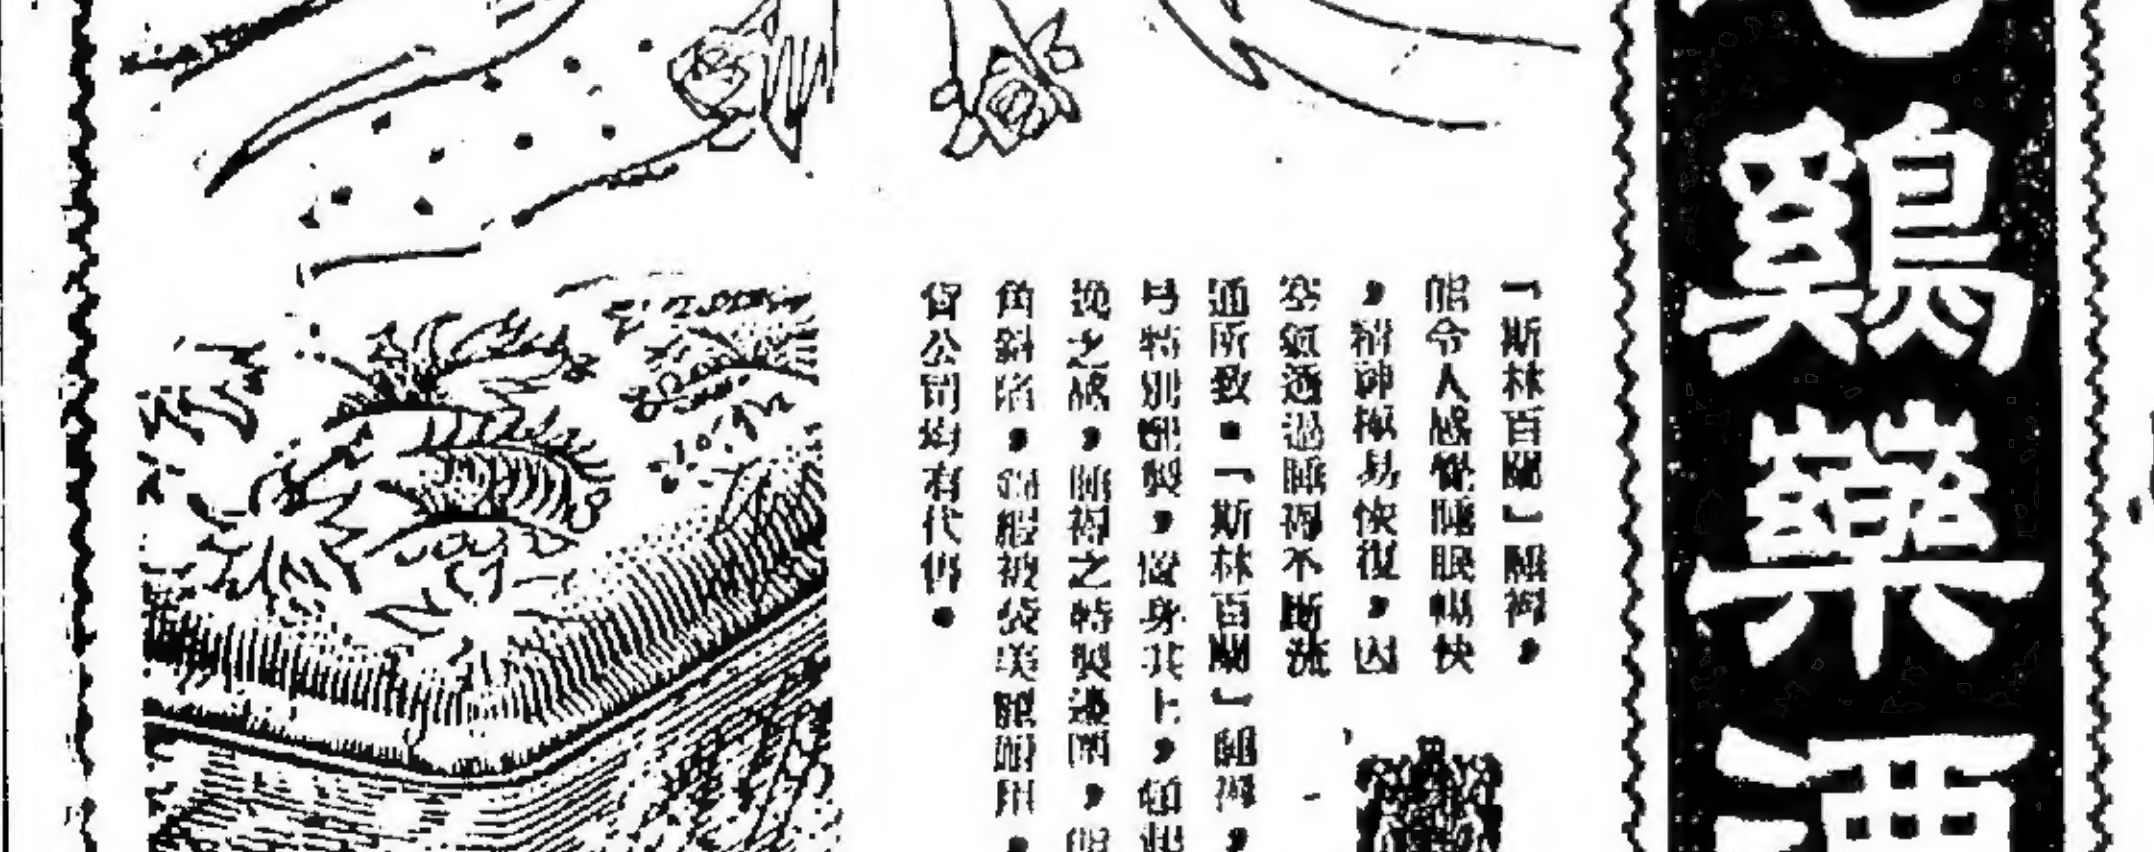 鷄藥酒
「斯林百蘭」睡褥，
能令人感覺睡眠暢快
，精神極易恢復，因
空氣透過睡褥不斷流
通所致．「斯林百蘭」睡褥，
特別製，身其上，
之感，睡褥之特製邊圍，
角斜，被袋美麗耐用．
公司均有代售．